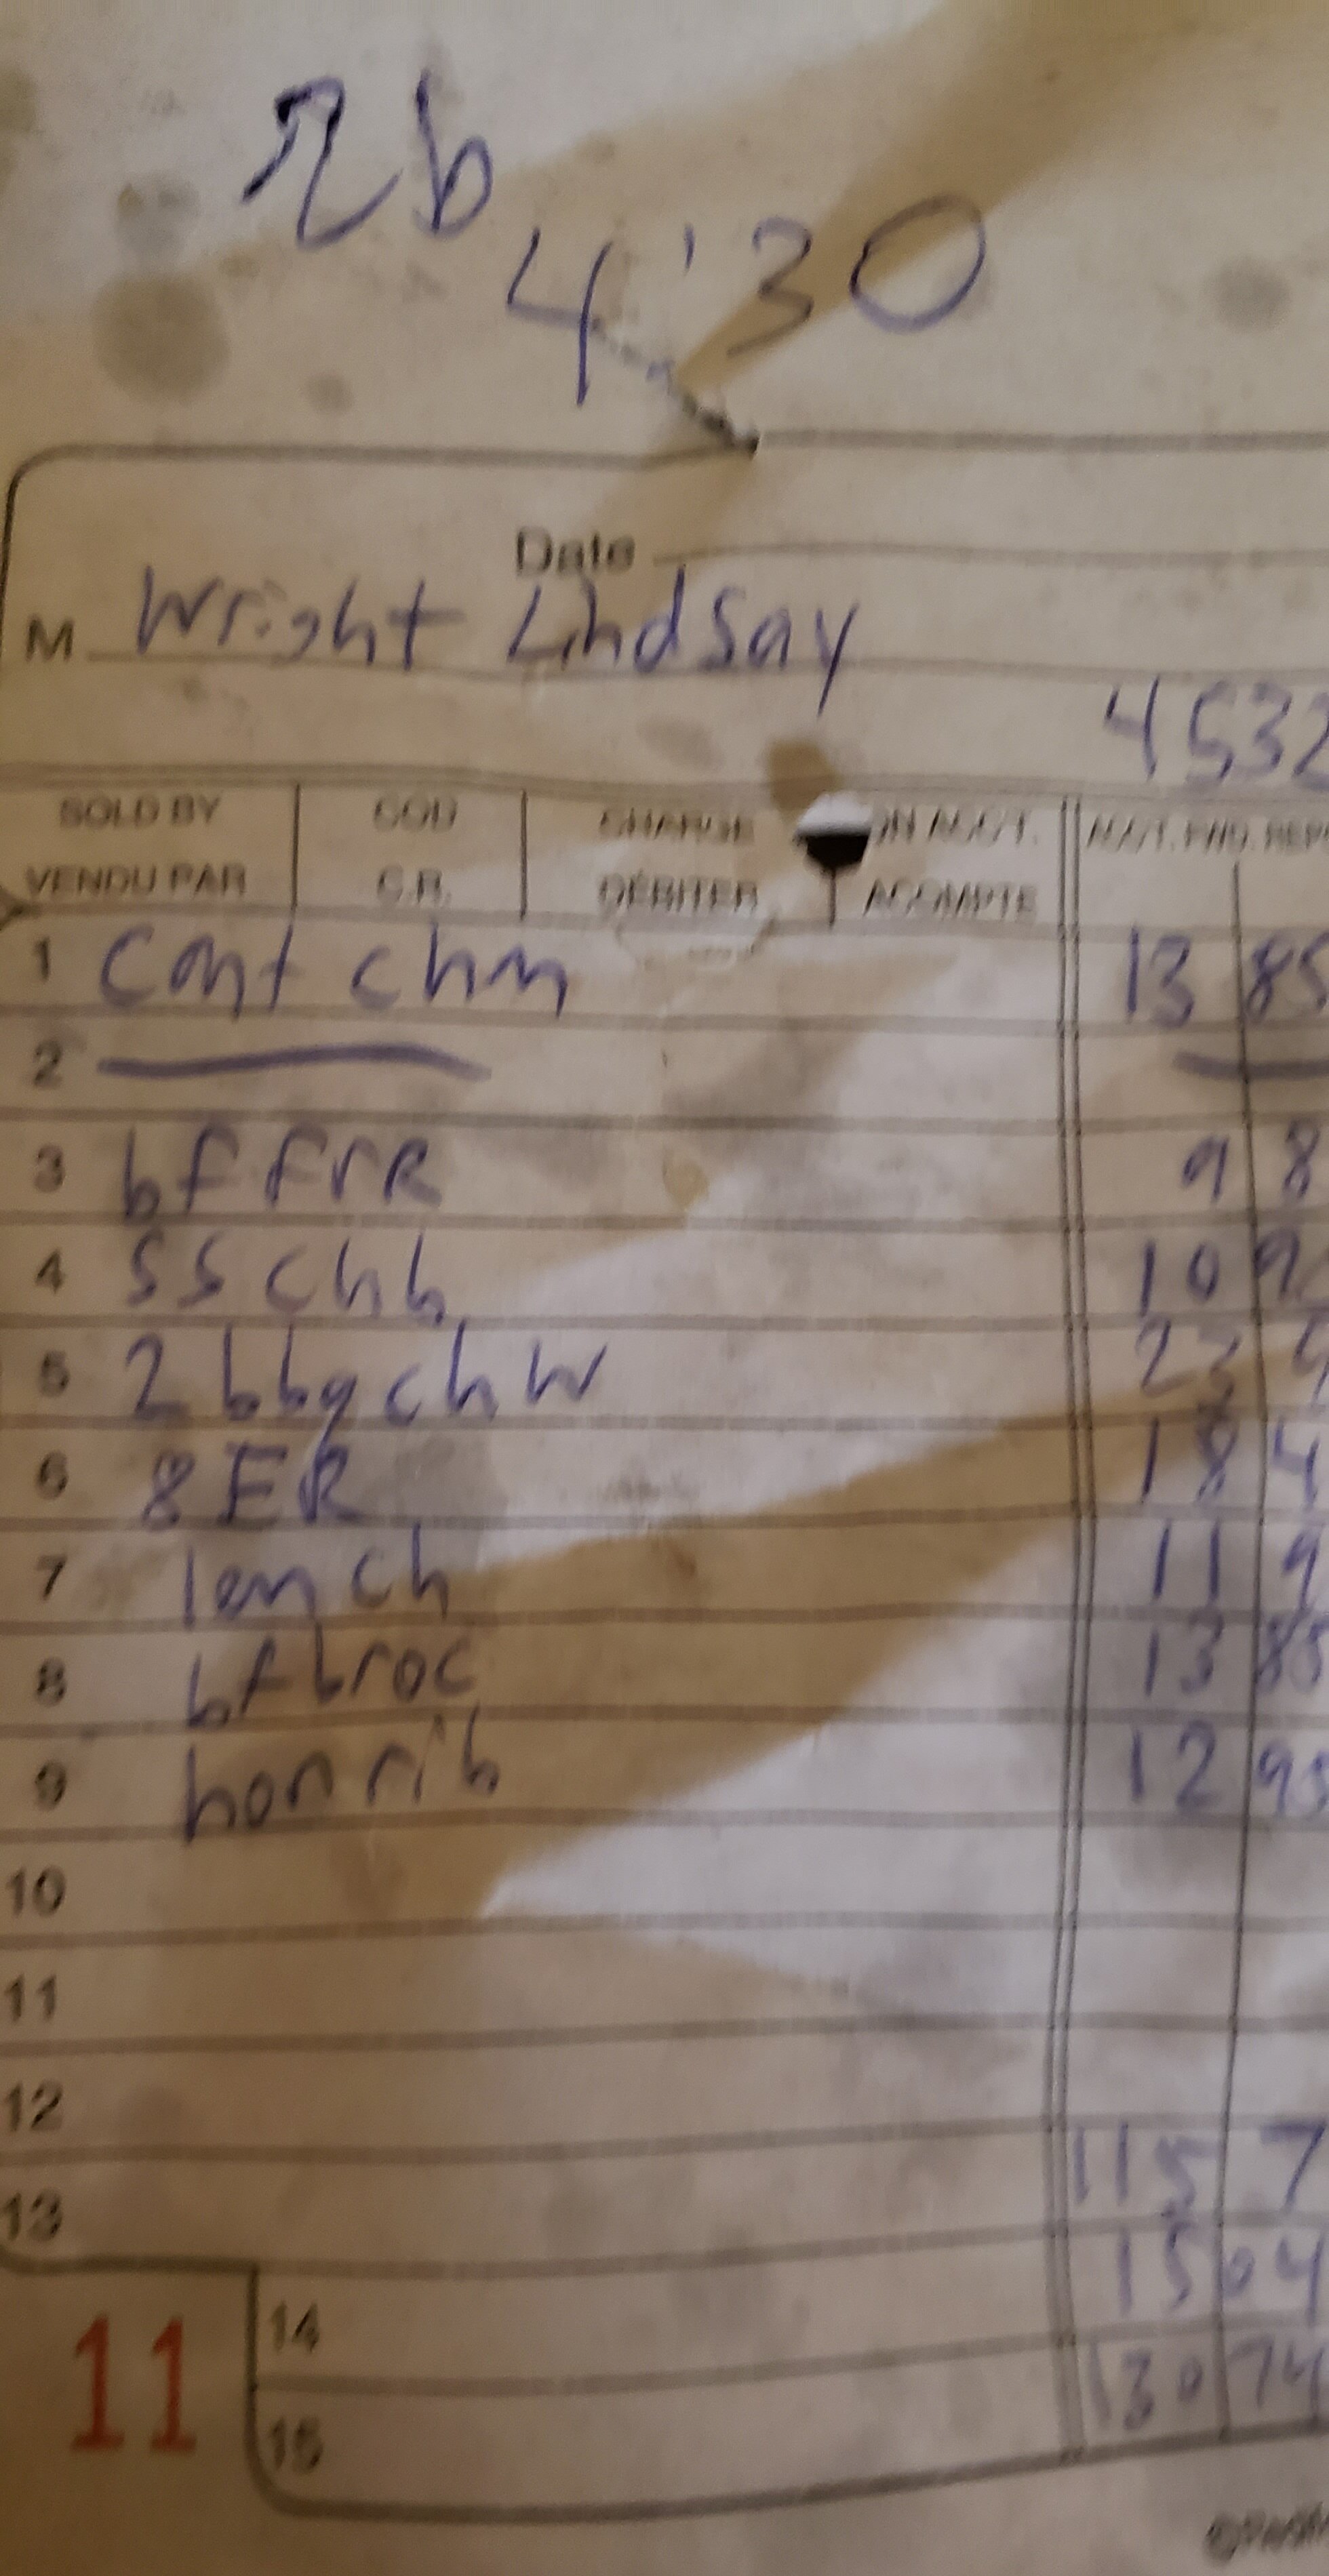 4'30
Date
M Wright Lindsay
4532
SOLD BY COD CHARGE ON ACCT. ACCT. FWD.
VENDU PAR C.R. DÉBITER ACOMPTE
1 Cant chm 13 85
2
3 bf frR 9 8
4 SS chb 10 9
5 2 bbq ch W 23 9
6 8 ER 18 4
7 lem ch 11 9
8 bf broc 13 85
9 hon rib 12 95
10
11
12
115 7
13
15 04
14
130 74
11
15